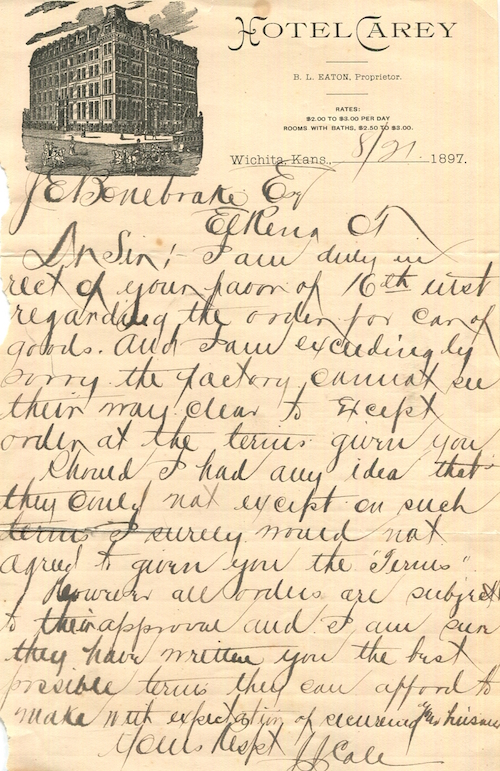 HOTEL CAREY
B. L. EATON, Proprietor.
RATES:
$2.00 TO $3.00 PER DAY
ROOMS WITH BATHS, $2.50 TO $3.00.
Wichita, Kans., 8/21 1897.
J E Bonebrake Esq
El Reno O T
Dr Sir! I am duly in
rect of your favor of 16th inst
regarding the order for Car of
goods. And I am excedingly
sorry the factory cannot see
their way clear to Except
order at the terms given you
Should I had any idea that
they could not except on such
terms I surely would not
agreed to given you the "Terms"
However all orders are subject
to their approval and I am sure
they have written you the best
possible terms they can afford to
make with expectation of
Yours Respt J J Cole